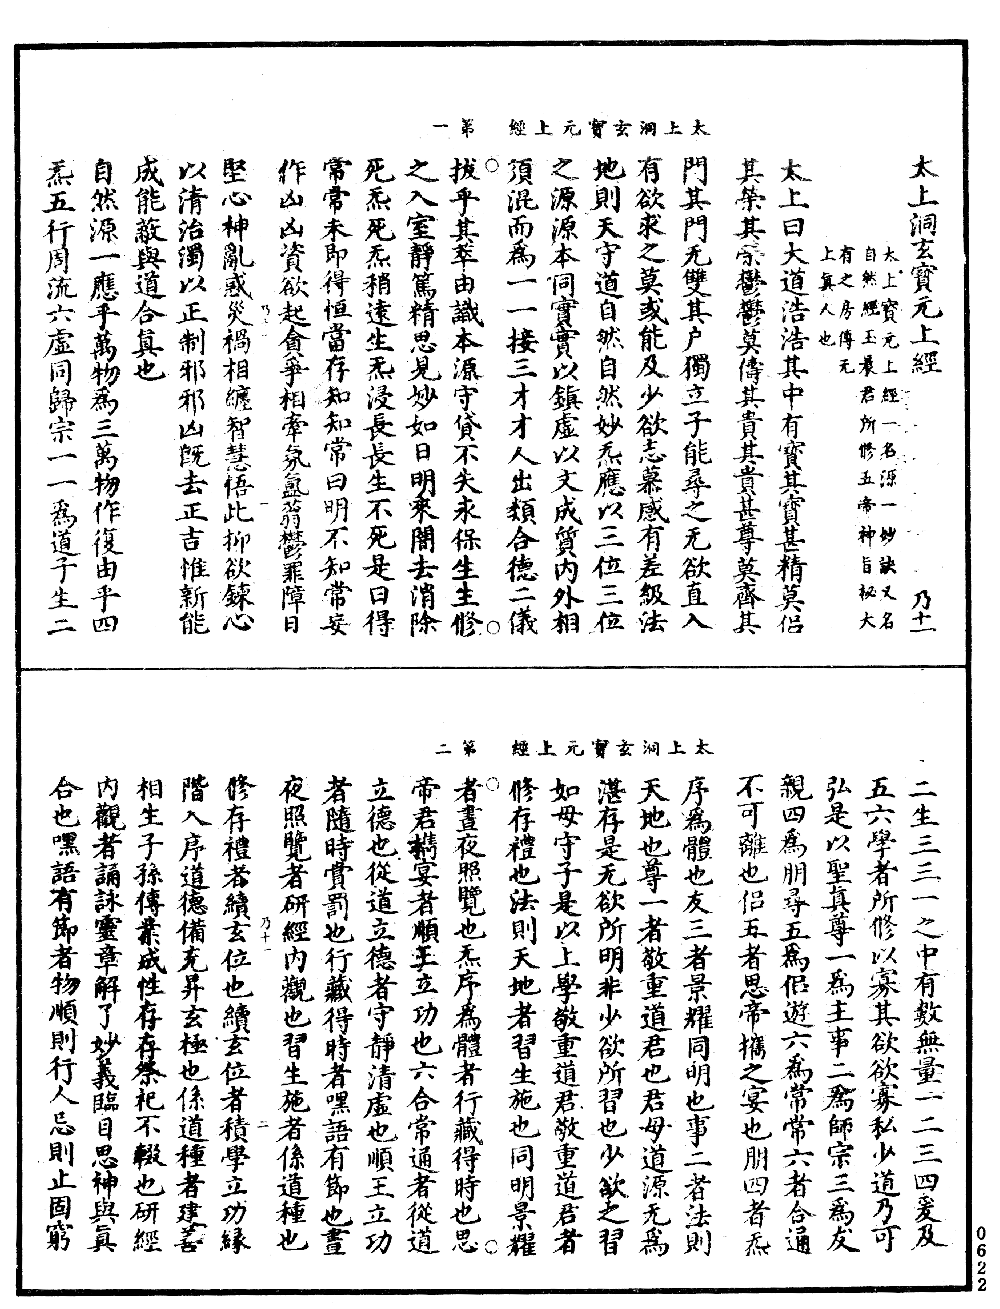 太上洞玄寶元上經　第一
太上洞玄寶元上經　乃十一
太上寶元上經一名源一妙訣又名
自然經玉晨君所修五帝神旨秘大
有之房傳元
上真人也
太上曰大道浩浩其中有寶其寶甚精莫侣
其築其崇鬱鬱莫儔其貴其貴甚尊莫齊其
門其門无雙其户獨立子能尋之无欲直入
有欲求之莫或能及少欲志慕感有差級法
地則天守道自然自然妙炁應以三位三位
之源源本同實實以鎮虛以文成質内外相
須混而為一一接三才才人出類合德二儀
拔乎其萃由識本源守貸不失永保生生修
之入室靜篤精思見妙如日明來闇去消除
死炁死炁稍遠生炁浸長長生不死是曰得
常常未即得恒當存知知常曰明不知常妄
作凶凶資欲起會爭相牽氛氳蓊鬱罪障日
堅心神亂惑災禍相纏智慧悟此抑欲鍊心
以清治濁以正制邪邪凶既去正吉惟新能
成能敝與道合真也
自然源一應乎萬物為三萬物作復由乎四
炁五行周流六虛同歸宗一一為道子生二
乃十一　一
太上洞玄寶元上經　第二
二生三三一之中有數無量一二三四爰及
五六學者所修以寡其欲欲寡私少道乃可
弘是以聖真尊一為主事二為師宗三為友
親四為朋尋五為侣遊六為常常六者合通
不可離也侣五者思帝攜之宴也朋四者炁
序為體也友三者景耀同明也事二者法則
天地也尊一者敬重道君也君母道源无為
湛存是无欲所明非少欲所習也少欲之習
如母守子是以上學敬重道君敬重道君者
修存禮也法則天地者習生施也同明景耀
者晝夜照覽也炁序為體者行藏得時也思
帝君攜宴者順王立功也六合常通者從道
立德也從道立德者守靜清虛也順王立功
者隨時賞罰也行藏得時者嘿語有節也晝
夜照覽者研經内觀也習生施者係道種也
修存禮者續玄位也續玄位者積學立功緣
階入序道德備充昇玄極也係道種者建善
相生子孫傳業成性存存祭祀不輟也研經
内觀者誦詠靈章解了妙義臨目思神與真
合也嘿語有節者物順則行人忌則止固窮
乃十一　二
0622